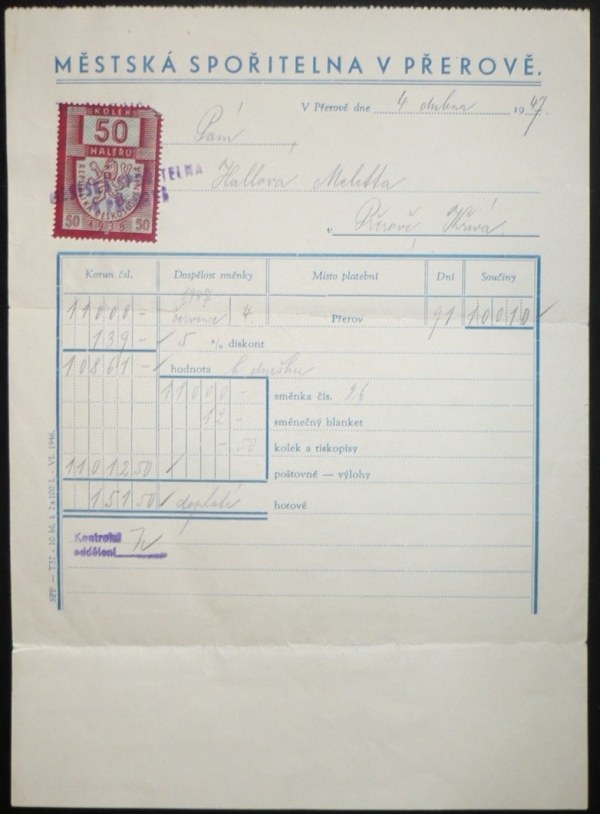 MĚSTSKÁ SPOŘITELNA V PŘEROVĚ.
V Přerově dne 4 dubna 1947.
KOLEK
50
HALÉŘŮ
REPUBLIKA ČESKOSLOVENSKÁ
50 1938 50
Paní
Hallova Melitta
v Přerově,
Korun čsl. Dospělost směnky Místo platební Dní Součiny
1947
11000 - července 4. Přerov 91 10010
139 - 5 % diskont
10861 - hodnota k dnešku
11000 - směnka čís. 26
12 - směnečný blanket
- 50 kolek a tiskopisy
11012 50 poštovné — výlohy
151 50 doplatí hotově
Kontrolní
oddělení
SPP — T37 - 10 bl. à 2x100 l. - VI. 1946.